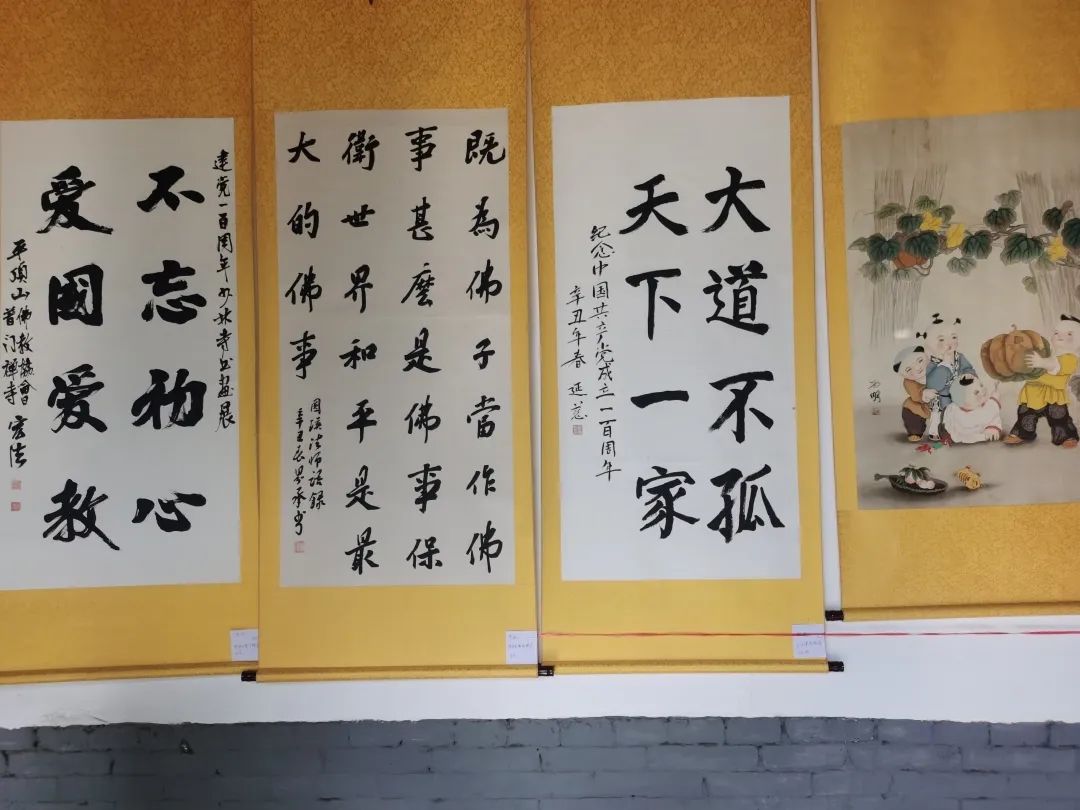 建党一百周年少林寺书画展
不忘初心
爱國爱教
平顶山佛教協會
普门禅寺 宏法
既為佛子當作佛
事甚麼是佛事保
衛世界和平是最
大的佛事
圆瑛法师语録
辛丑春界承书
大道不孤
天下一家
纪念中国共产党成立一百周年
辛丑年春 延慈